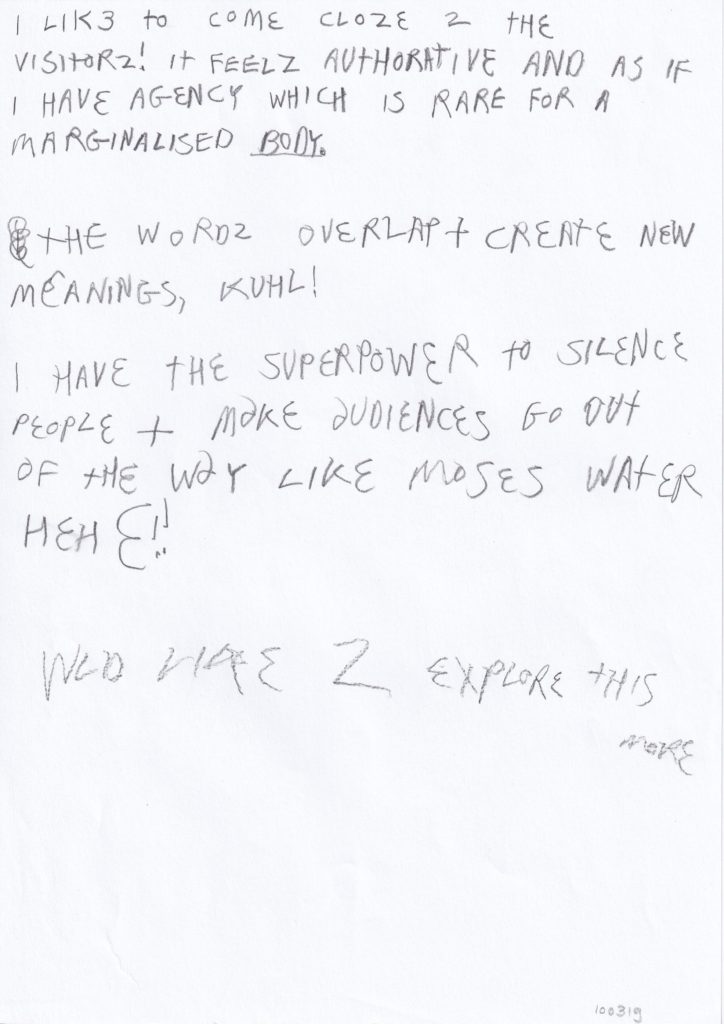 I LIK3 to COME CLOZE 2 THE
VISITORZ! It FEELZ AUTHORATIVE AND AS IF
I HAVE AGENCY WHICH IS RARE FOR A
MARGINALISED BODY.
THE WORDZ OVERLAP + CREATE NEW
MEANINGS, KUHL!
I HAVE THE SUPERPOWER to SILENCE
PEOPLE + MAKE AUDIENCES GO OUT
OF tHE WAY LIKE MOSES WATER
HEH !!
WLD LIKE 2 EXPLORE tHIS
MORE
100319